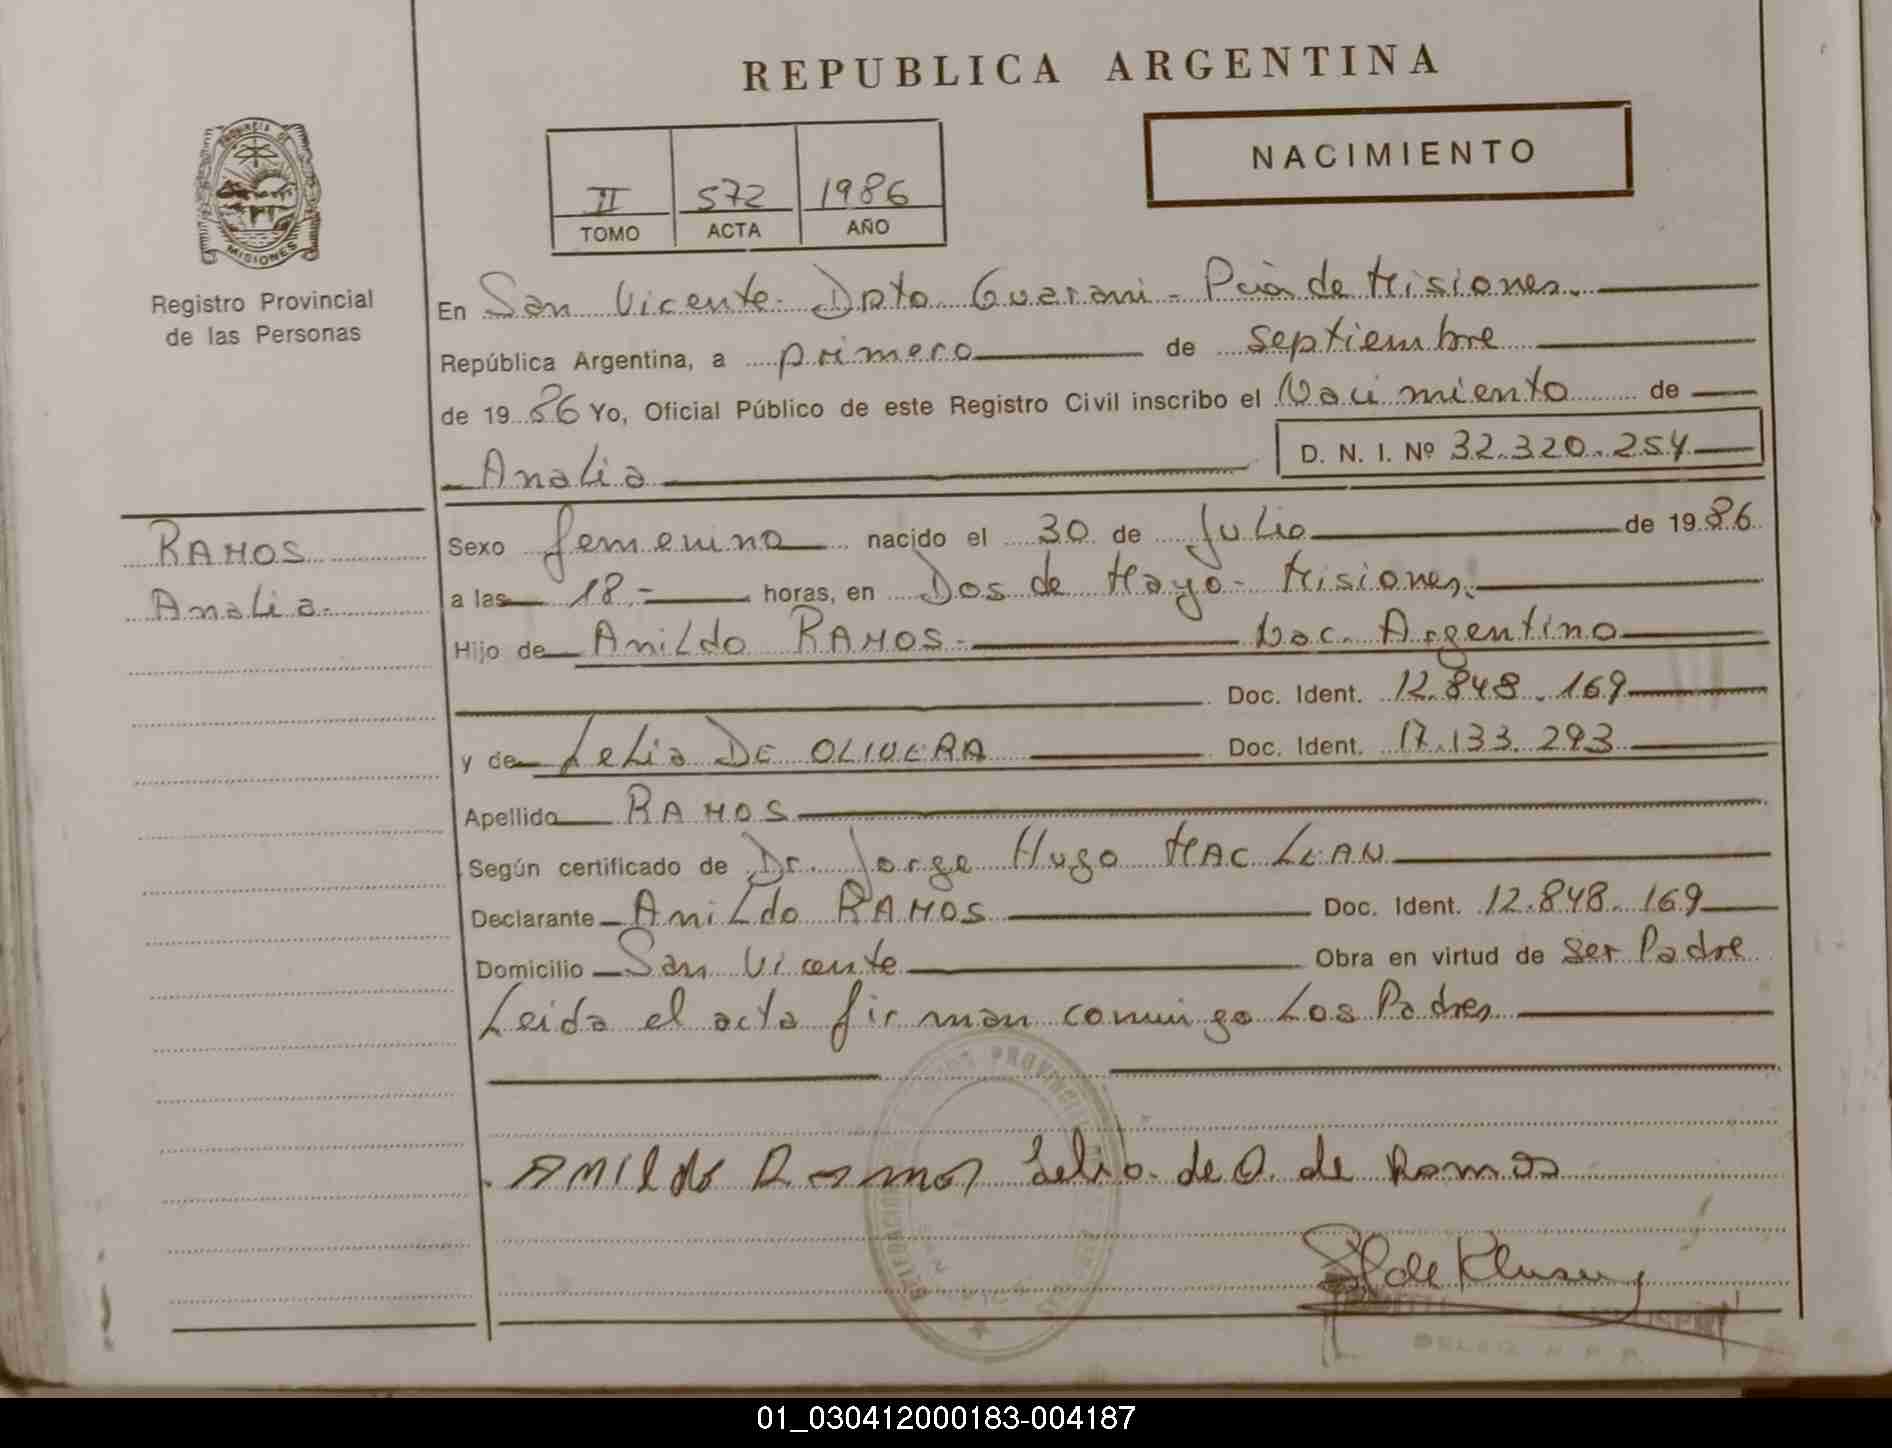 REPUBLICA ARGENTINA
NACIMIENTO
II 572 1986
TOMO ACTA AÑO
PROVINCIA DE
MISIONES
Registro Provincial
de las Personas
En San Vicente Dpto Guarani - Pcia de Misiones.
República Argentina, a primero de septiembre
de 1986 Yo, Oficial Público de este Registro Civil inscribo el Nacimiento de
Analia D. N. I. Nº 32.320.254
RAMOS
Analia.
Sexo femenino nacido el 30 de Julio de 1986
a las 18.- horas, en Dos de Mayo - Misiones.
Hijo de Anildo RAMOS- Nac. Argentino
Doc. Ident. 12.848.169
y de Lelia DE OLIVERA Doc. Ident. 17.133.293
Apellido RAMOS
Según certificado de Dr. Jorge Hugo MAC LEAN
Declarante Anildo RAMOS Doc. Ident. 12.848.169
Domicilio San Vicente Obra en virtud de Ser Padre
Leida el acta firman conmigo Los Padres
Anildo Ramos Lelia de O. de Ramos
01_030412000183-004187